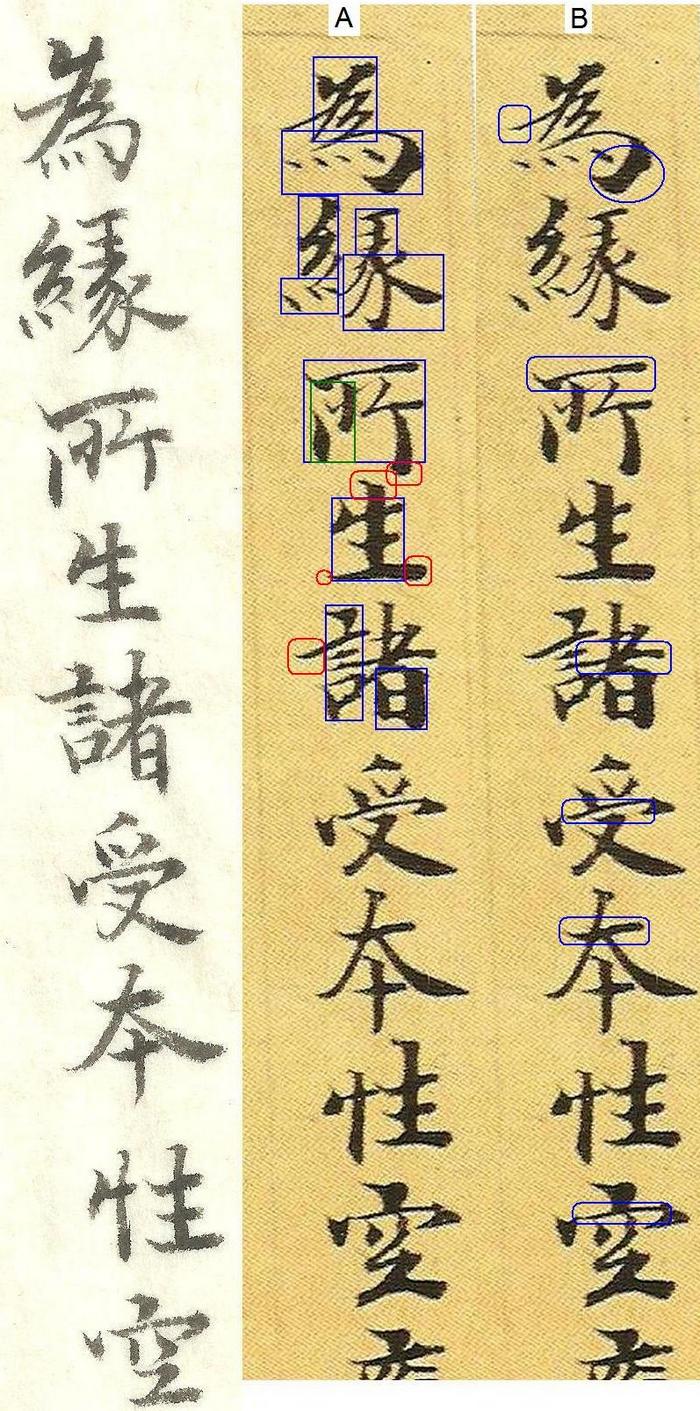 A
B
為緣所生諸受本性空
為緣所生諸受本性空
為緣所生諸受本性空